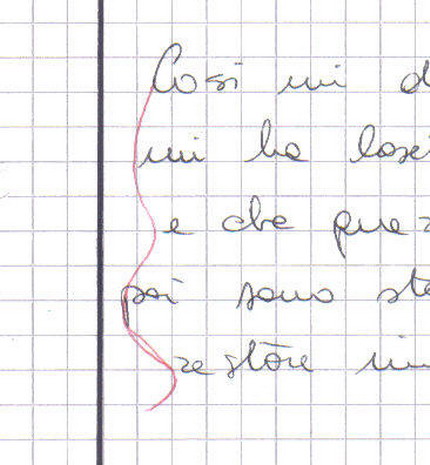 Così mi d
mi ha lasci
e che que
poi sono sta
restare in